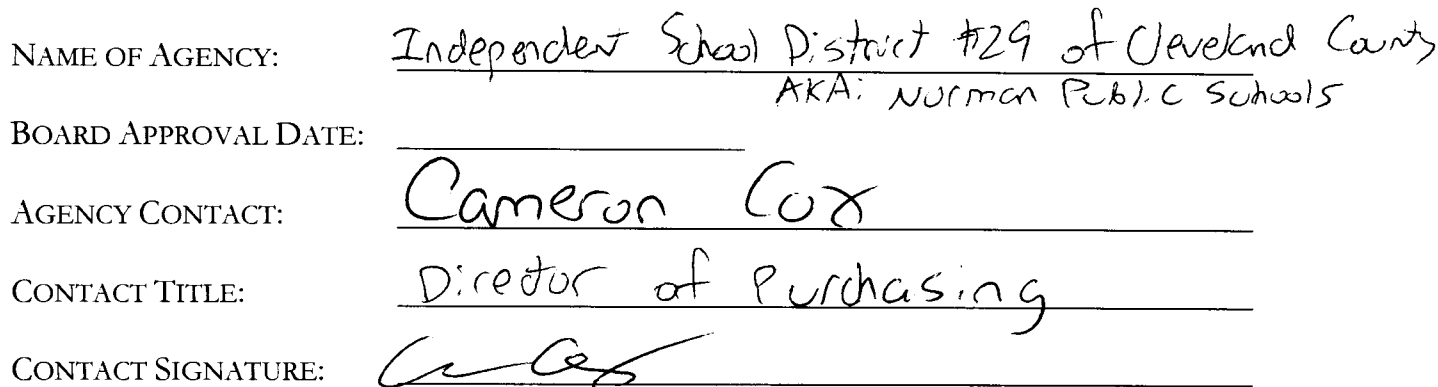 NAME OF AGENCY: Independent School District #29 of Cleveland County
AKA: Norman Public Schools
BOARD APPROVAL DATE:
AGENCY CONTACT: Cameron Cox
CONTACT TITLE: Director of Purchasing
CONTACT SIGNATURE: